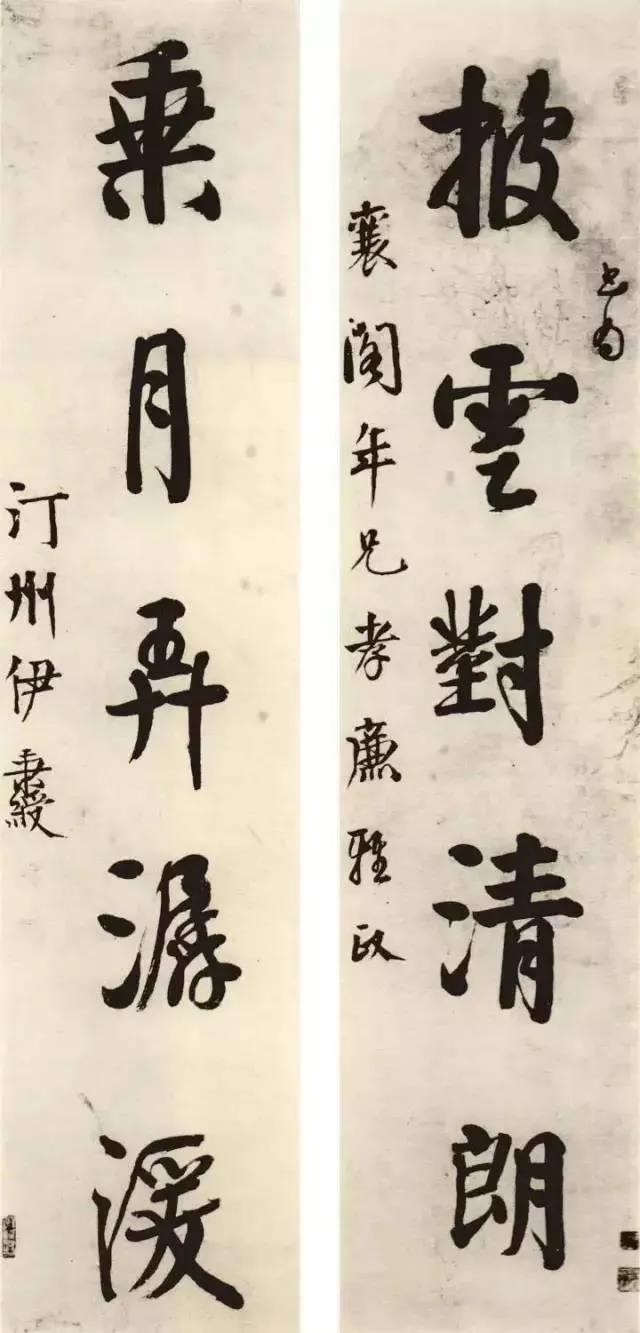 披雲對清朗
襄閣年兄孝廉雅政
乘月弄潺湲
汀州伊秉綬